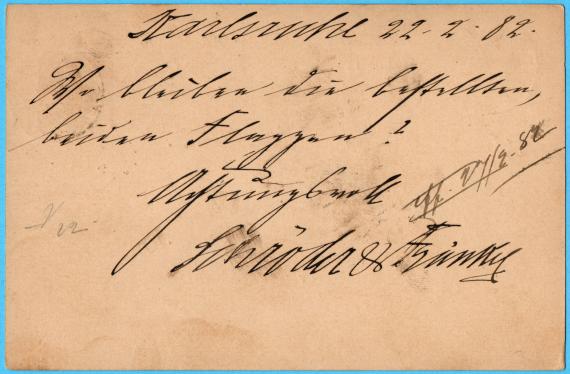 Karlsruhe 22.2.82.
Wo bleiben die bestellten,
beiden Flaggen?
Achtungsvoll
Schröder & Fränkel
22